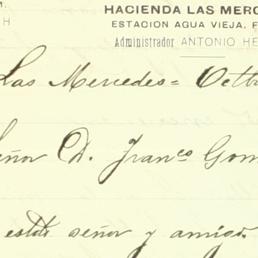 HACIENDA LAS MERC
ESTACION AGUA VIEJA, F
Administrador ANTONIO HE
Las Mercedes= Octb
eñor D. Franco Gom
estdo señor y amigo.